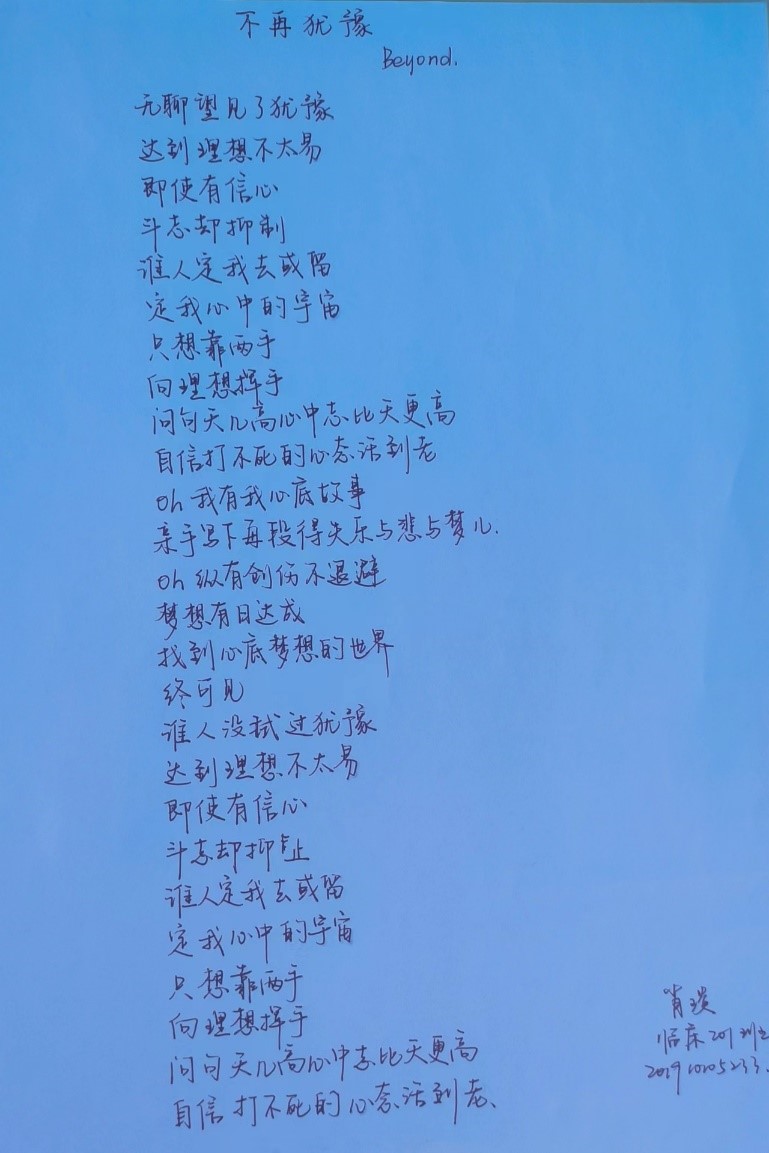 不再犹豫
Beyond.
无聊望见了犹豫
达到理想不太易
即使有信心
斗志却抑制
谁人定我去或留
定我心中的宇宙
只想靠两手
向理想挥手
问句天几高心中志比天更高
自信打不死的心态活到老
Oh 我有我心底故事
亲手写下每段得失乐与悲与梦儿.
Oh 纵有创伤不退避
梦想有日达成
找到心底梦想的世界
终可见
谁人没试过犹豫
达到理想不太易
即使有信心
斗志却抑
谁人定我去或留
定我心中的宇宙
只想靠两手
向理想挥手
问句天几高心中志比天更高
自信打不死的心态活到老、
肖
临床201班